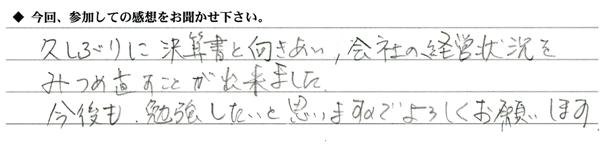 ◆ 今回、参加しての感想をお聞かせ下さい。
久しぶりに決算書と向きあい, 会社の経営状況を
みつめ直すことが出来ました.
今後も、勉強したいと思いますのでよろしくお願いします.